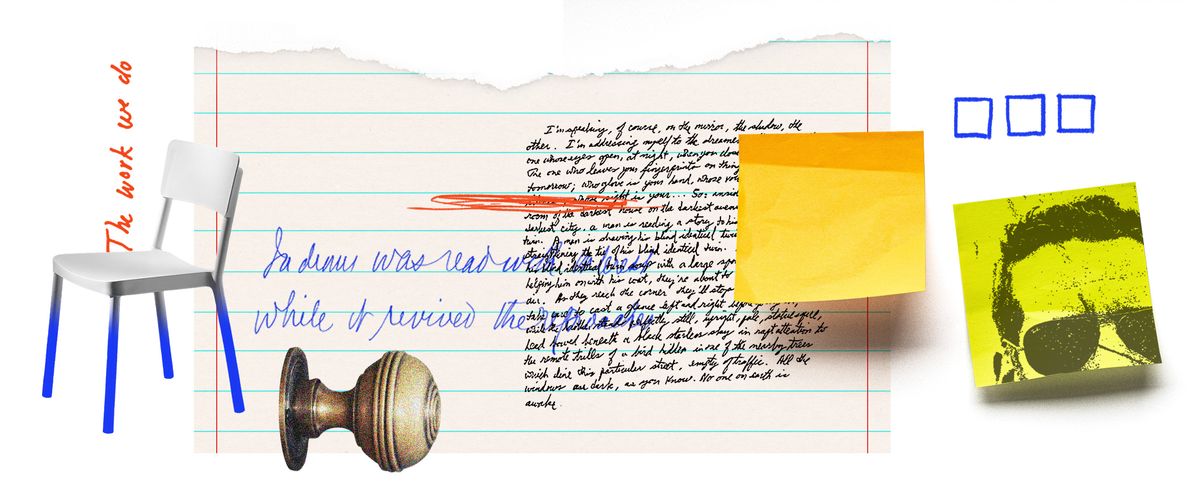 The work we do
I'm speaking, of course, on the mirror, the shadow, the
other. I'm addressing myself to the
one whose eyes open, at night, when you
The one who leaves your fingerprints on
tomorrow; who glove is your hand, whose
whose night is your... So:
room of the darkest house on the darkest
darkest city, a man is reading a story to his
twin. A man is shaving his blind identical
straightening the tie of his blind identical twin.
blind identical twin soup with a large
helping him on with his coat, they're about to
As they reach the corner they'll stop
take care to cast a glance left and right
while stand perfectly still, upright pale, statuesque,
head bowed beneath a black starless sky in rapt attention to
the remote trills of a bird hidden in one of the nearby trees
which line this particular street, empty of traffic. All the
windows are dark, as you know. No one on earth is
awake.
was read with
while it revived the